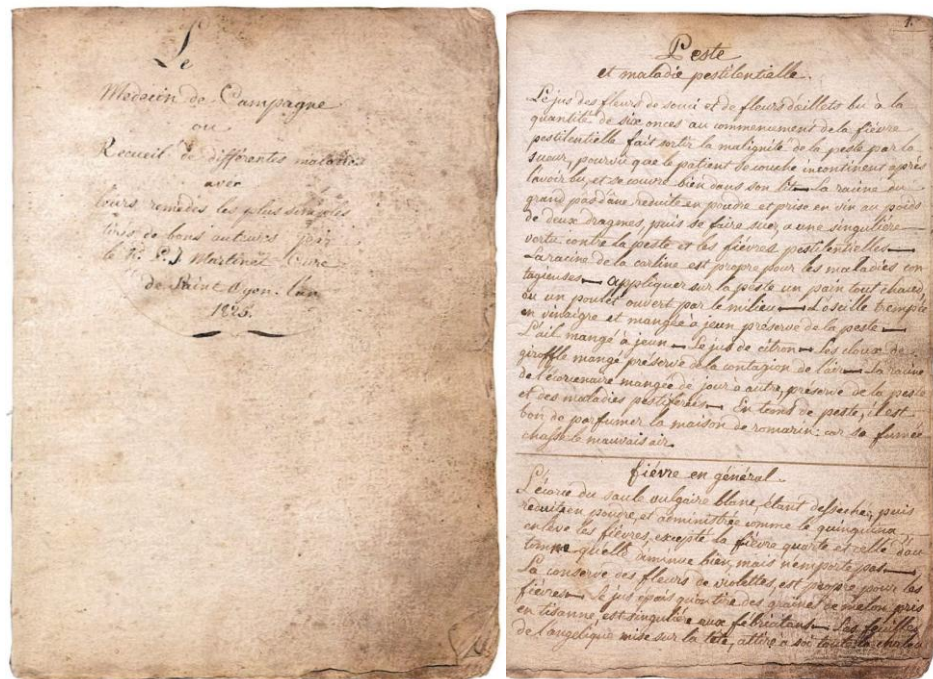 Le
Medecin de Campagne
ou
Recueil de differentes maladies
avec
leurs remedes les plus simples
tirés de bons auteurs par
le R. P. J. Martinet Curé
de Saint Oyen. l'an
1825.
1.
Peste
et maladie pestilentielle.
Le jus des fleurs de souci et de fleurs d'œillets bu à la
quantité de six onces au commencement de la fièvre
pestilentielle fait sortir la malignité de la peste par la
sueur, pourvû que le patient se couche incontinent après
l'avoir bu, et se couvre bien dans son lit — la racine du
grand pas d'âne reduite en poudre et prise en vin au poids
de deux dragmes, puis se faire suer, a une singulière
vertu contre la peste et les fiévres pestilentielles —
La racine de la carline est propre pour les maladies con
tagieuses — appliquer sur la peste un pain tout chaud
ou un poulet ouvert par le milieu — L'oseille trempée
en vinaigre et mangée à jeun préserve de la peste —
L'ail mangé à jeun — Le jus de citron — Les cloux de
giroffle mangé préserve de la contagion de l'air — La racine
de mangée de jour à autre, preserve de la peste
et des maladies pestiferés — En tems de peste, il est
bon de parfumer la maison de romarin; car sa fumée
chasse le mauvais air.
fiévre en général.
L'écorce du saule vulgaire blanc, étant desseché, puis
réduite en poudre, et administrée comme le quinquina
enlève les fiévres, excepté la fièvre quarte et celle d'au
tomne qu'elle diminue bien, mais n'emporte pas —
La conserve des fleurs de violettes, est propre pour les
fiévres — le jus épais qu'on tire des graines de melon pris
en tisanne, est singulière aux febricitans — Les feuilles
de l'angelique mise sur la tête, attire à soi toute la chaleur